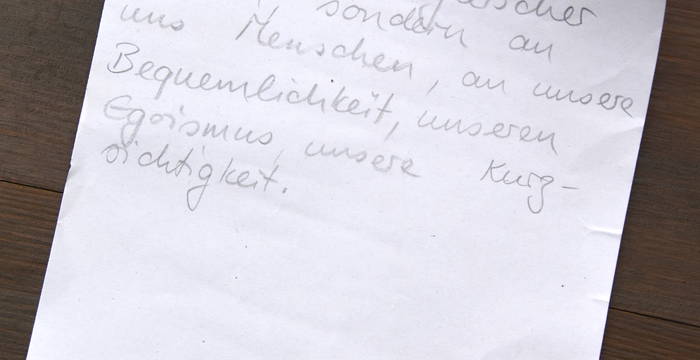 sondern an
uns Menschen, an unsere
Bequemlichkeit, unseren
Egoismus, unsere Kurz-
sichtigkeit.